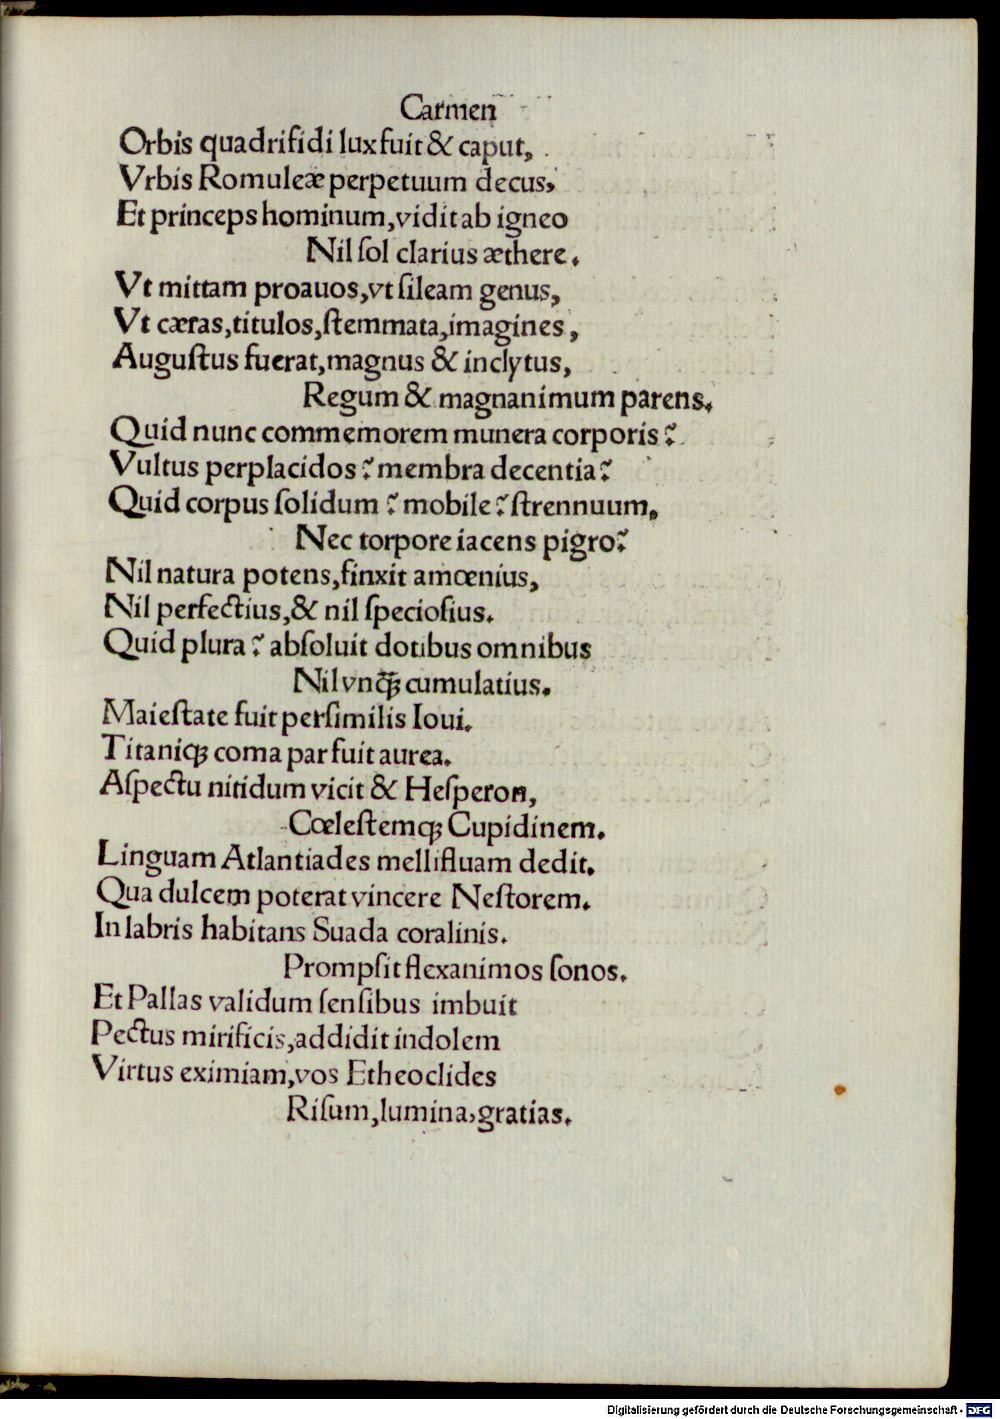 Carmen
Orbis quadrifidi lux fuit & caput,
Vrbis Romuleæ perpetuum decus,
Et princeps hominum, vidit ab igneo
Nil ſol clarius æthere.
Vt mittam proauos, vt ſileam genus,
Vt cæras, titulos, ſtemmata, imagines,
Auguſtus fuerat, magnus & inclytus,
Regum & magnanimum parens.
Quid nunc commemorem munera corporis?
Vultus perplacidos? membra decentia?
Quid corpus ſolidum? mobile? ſtrennuum,
Nec torpore iacens pigro?
Nil natura potens, finxit amœnius,
Nil perfectius, & nil ſpecioſius.
Quid plura? abſoluit dotibus omnibus
Nil vnq̃ꝫ cumulatius.
Maieſtate fuit perſimilis Ioui.
Titaniqꝫ coma par fuit aurea.
Aſpectu nitidum vicit & Heſperon,
Cœleſtemqꝫ Cupidinem.
Linguam Atlantiades mellifluam dedit.
Qua dulcem poterat vincere Neſtorem.
In labris habitans Suada coralinis.
Prompſit flexanimos ſonos.
Et Pallas validum ſenſibus imbuit
Pectus mirificis, addidit indolem
Virtus eximiam, vos Etheoclides
Riſum, lumina, gratias.
Digitalisierung gefördert durch die Deutsche Forschungsgemeinschaft - DFG